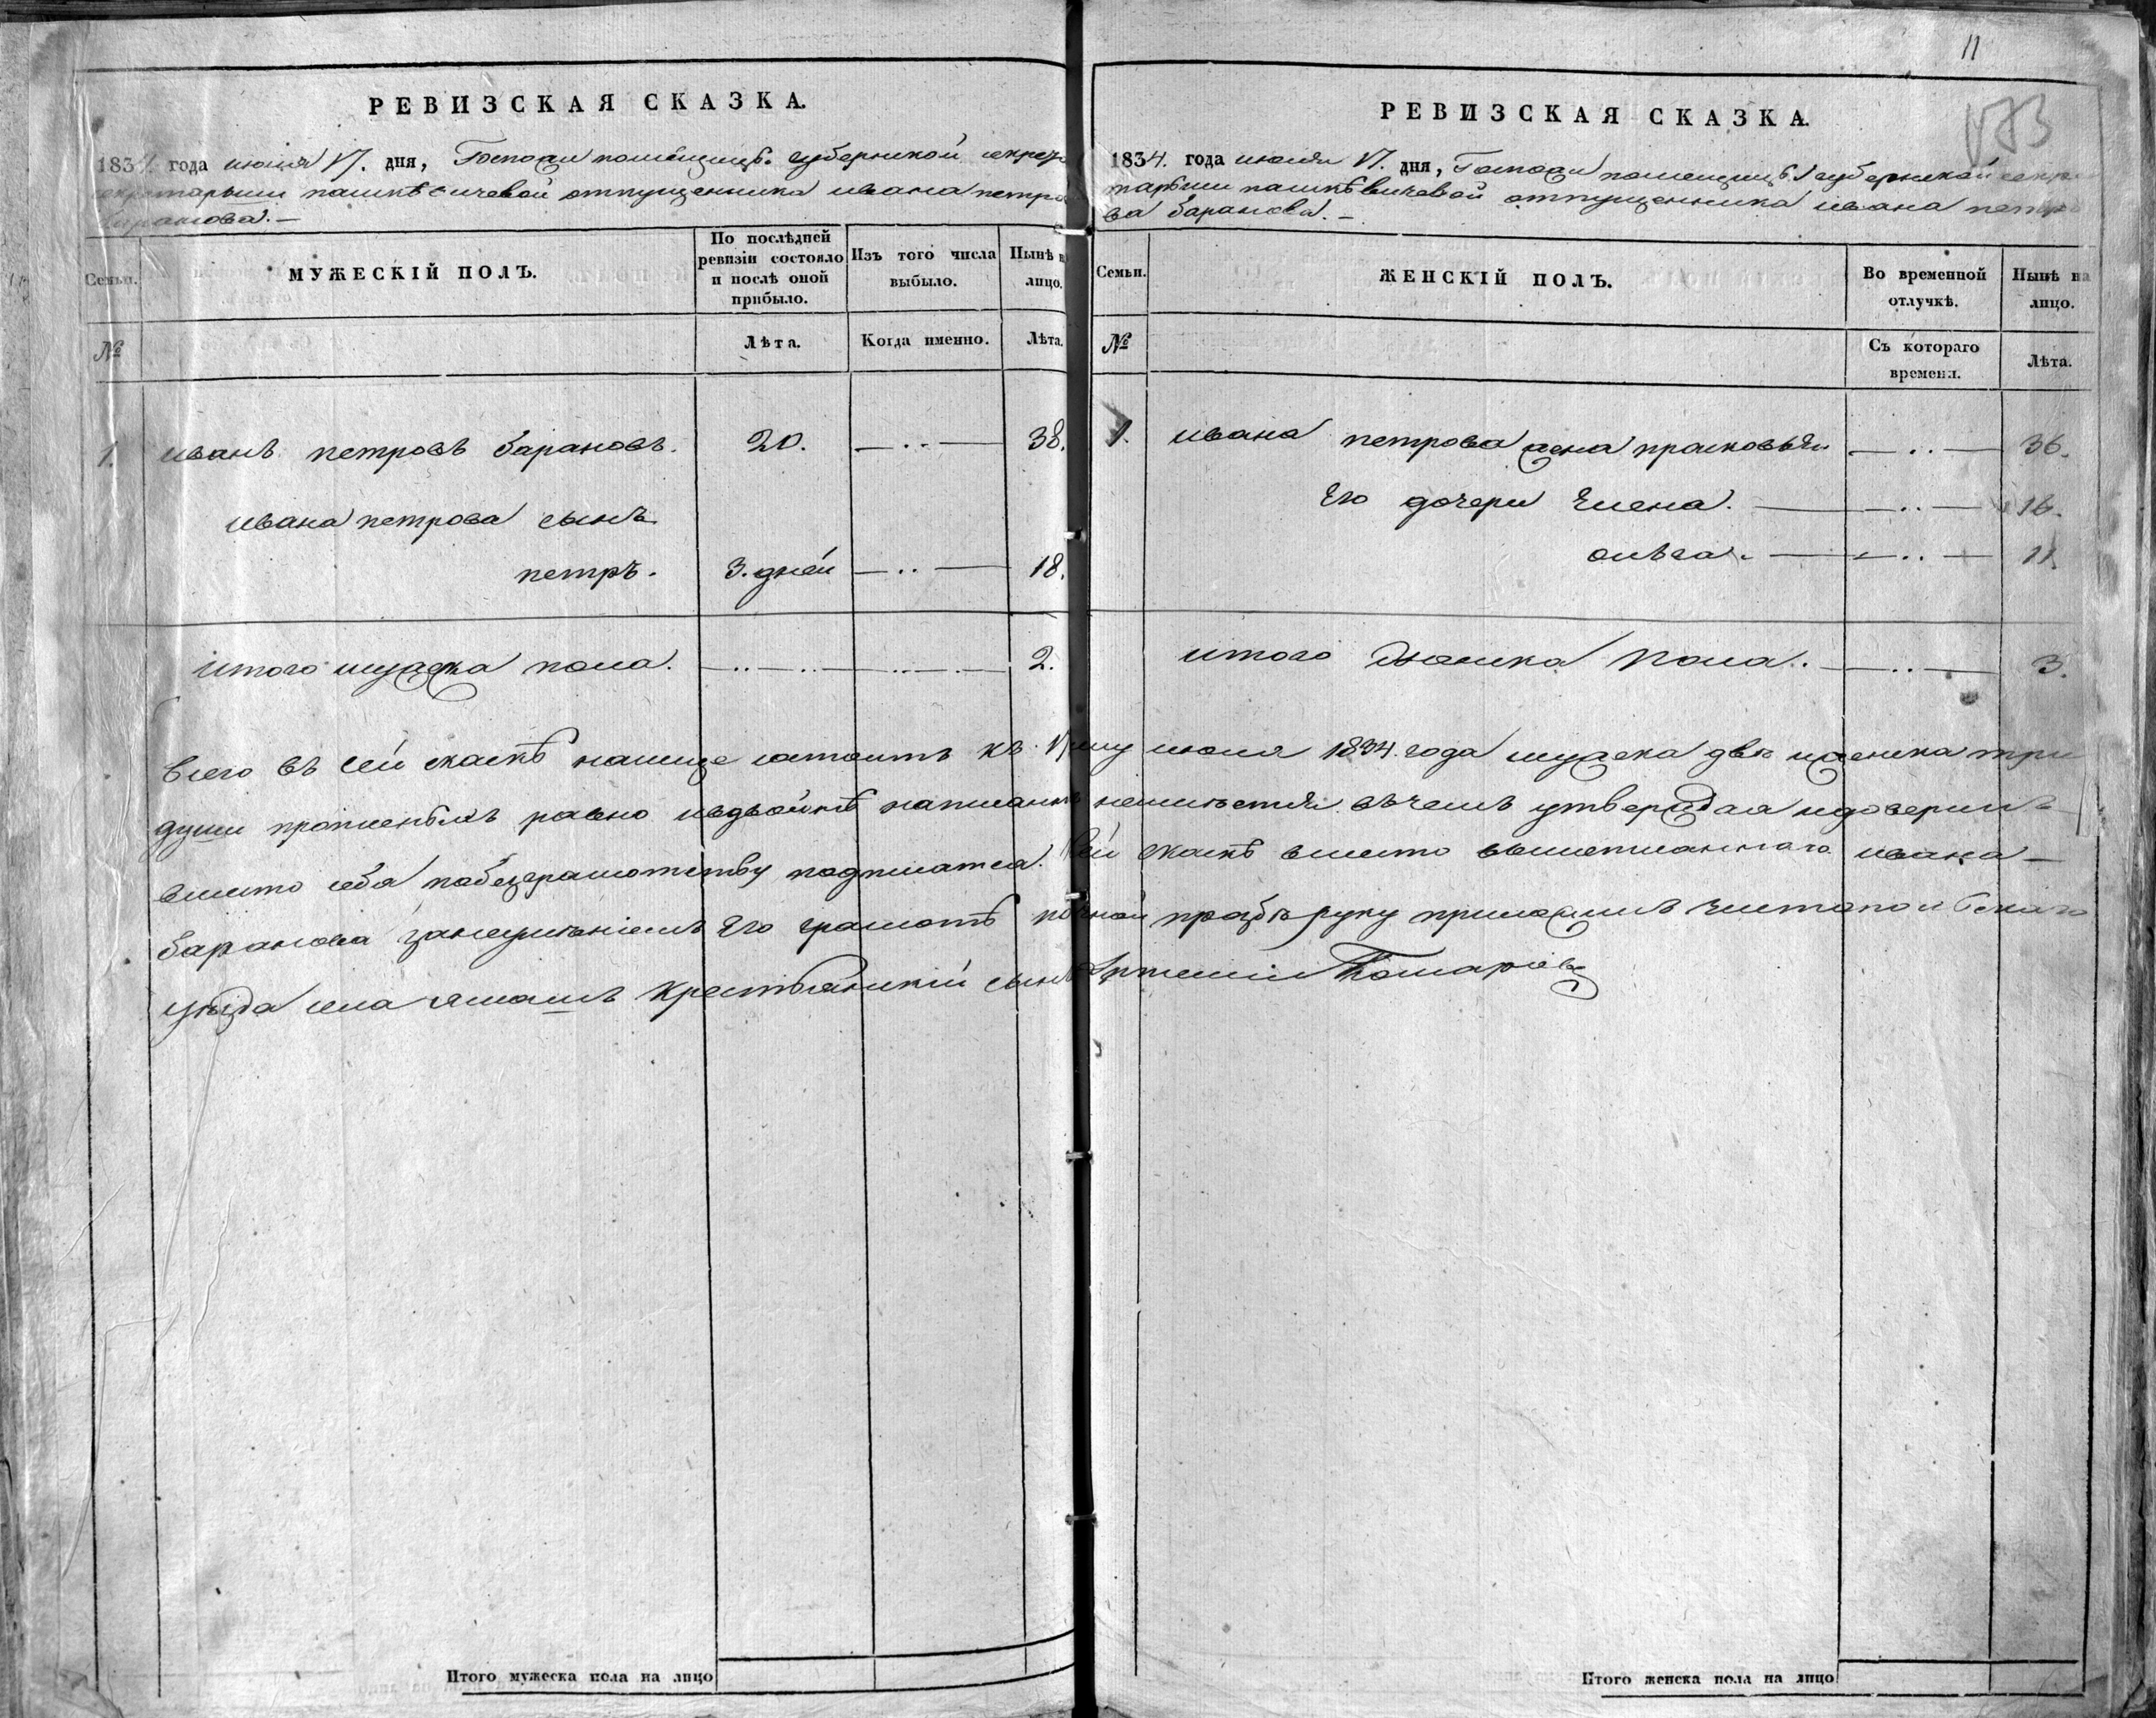 11
183
РЕВИЗСКАЯ СКАЗКА.
1834. года июля 17. дня, Госпожи помѣщицы. губернской секре
секретарьши пашкѣвичевой отпущенника ивана петро
баранова. —
Семьи.
МУЖЕСКІЙ ПОЛЪ.
По послѣдней ревизіи состояло и послѣ оной прибыло.
Изъ того числа выбыло.
Нынѣ на лицо.
№
Лѣта.
Когда именно.
Лѣта.
1. иванъ петровъ барановъ. 20. — .. — 38.
ивана петрова сынъ
петръ. 3. дней — .. — 18.
итого мужеска пола. — .. — .. — .. — 2.
РЕВИЗСКАЯ СКАЗКА.
1834. года июля 17. дня, Госпожи помещицы губернской секре
тарьши пашкѣвичевой отпущенника ивана петро
ва баранова. —
Семьи.
ЖЕНСКІЙ ПОЛЪ.
Во временной отлучкѣ.
Нынѣ на лицо.
№
Съ котораго времени.
Лѣта.
1. ивана петрова жена прасковья — .. — 36.
Его дочери Елена. — .. — 16.
ольга. — .. — 11.
итого женска пола. — .. — 3.
всего въ сей скаскѣ налице состоитъ къ 17му июля 1834. года мужеска две женска три
души прописныхъ равно вдвойнѣ написанныхъ неимѣется въчемъ утверждая идоверилъ
вместо себя побезграмотству подписатся. сей скаскѣ вместо вышеписаннаго ивана —
баранова занеумѣніемъ Его грамотѣ поличной прозбѣ руку приложилъ Чистопольскаго
уѣзда села крестьянскій сынъ
Итого мужеска пола на лицо
Итого женска пола на лицо